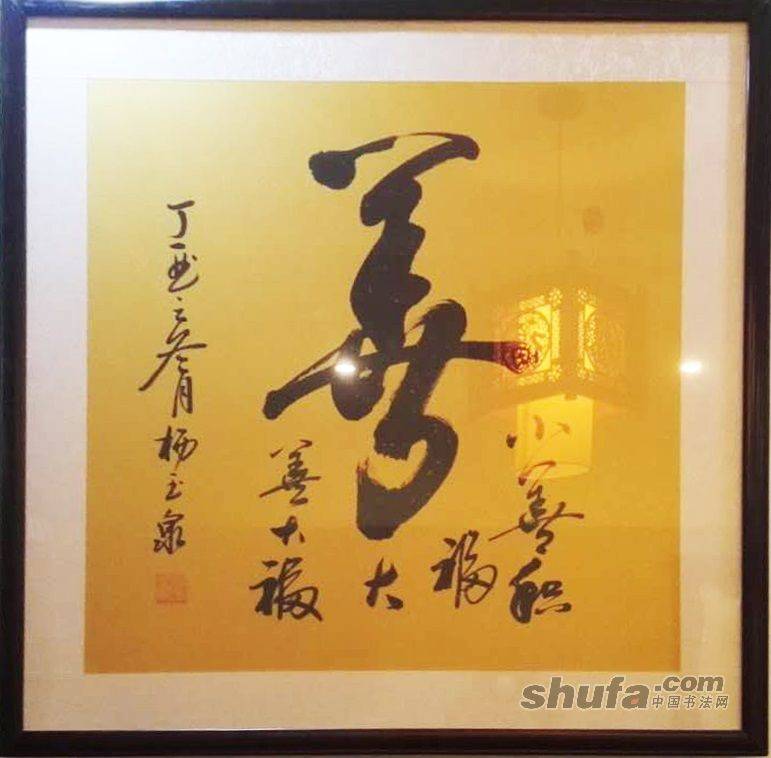 善
小善积
福
大
善大福
丁酉之冬月杨玉泉
shufa.com
中国书法网